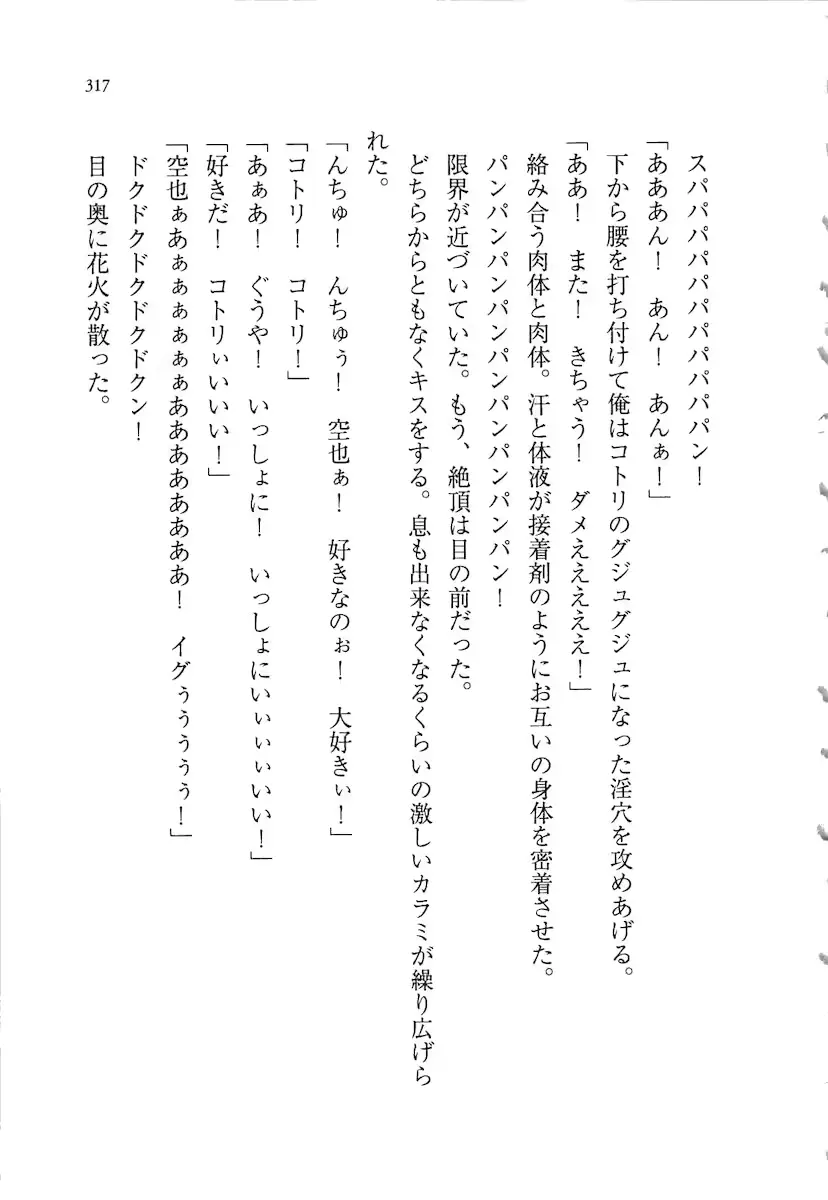 317
スパパパパパパパパパパパン！
「あああん！　あん！　あんぁ！」
下から腰を打ち付けて俺はコトリのグジュグジュになった淫穴を攻めあげる。
「ああ！　また！　きちゃう！　ダメえええええ！」
絡み合う肉体と肉体。汗と体液が接着剤のようにお互いの身体を密着させた。
パンパンパンパンパンパンパンパンパン！
限界が近づいていた。もう、絶頂は目の前だった。
どちらからともなくキスをする。息も出来なくなるくらいの激しいカラミが繰り広げら
れた。
「んちゅ！　んちゅぅ！　空也ぁ！　好きなのぉ！　大好きぃ！」
「コトリ！　コトリ！」
「あぁあ！　ぐうや！　いっしょに！　いっしょにいぃぃぃいい！」
「好きだ！　コトリぃいいい！」
「空也ぁあぁぁぁぁぁぁああああああああ！　イグぅぅぅぅぅ！」
ドクドクドクドクドクン！
目の奥に花火が散った。